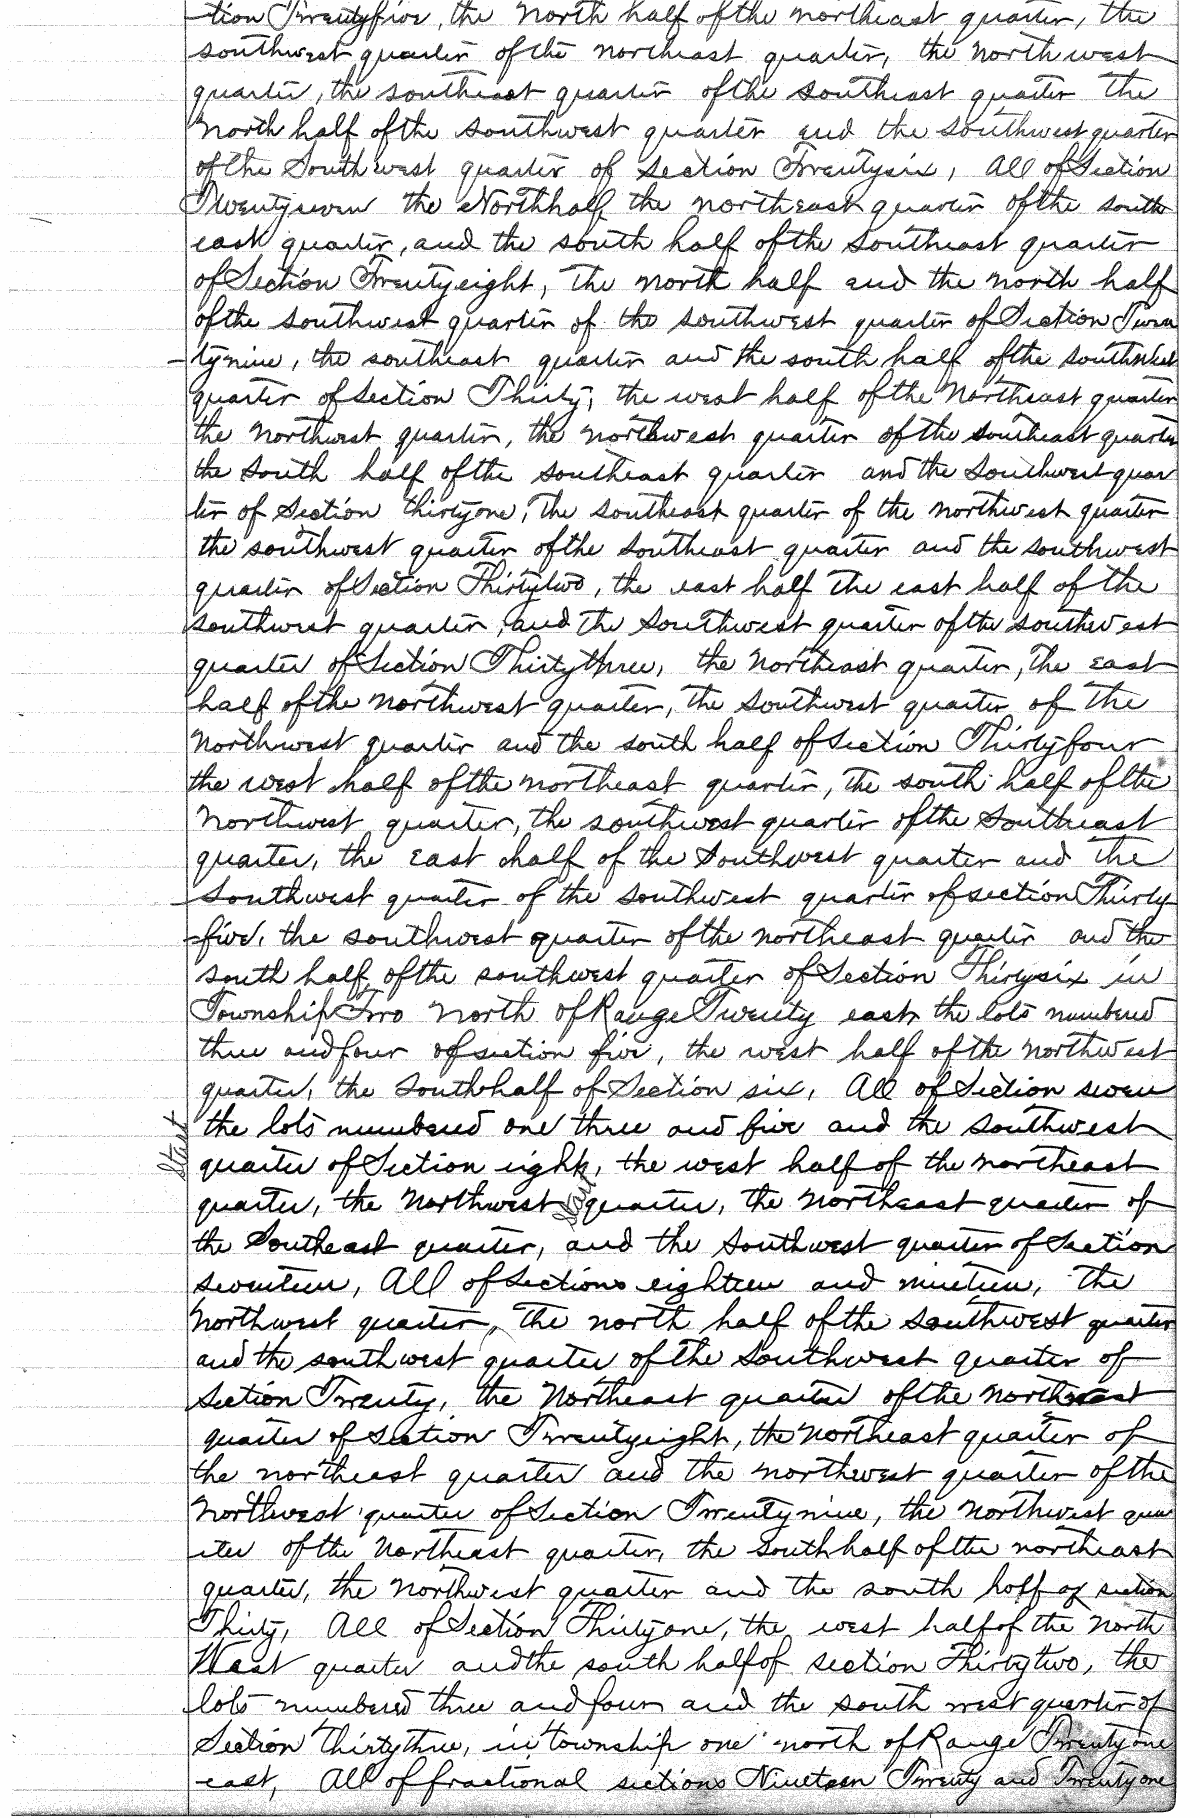 -tion Twentyfive, the North half of the northeast quarter, the
southwest quarter of the northeast quarter, the North west
quarter, the southeast quarter of the southeast quarter the
North half of the southwest quarter and the southwest quarter
of the South west quarter of section Twentysix, All of Section
Twentyseven the North half the northeast quarter of the south
east quarter, and the south half of the southeast quarter
of Section Twentyeight, The north half and the north half
of the southwest quarter of the southwest quarter of Section Twen
-tynine, the southeast quarter and the south half of the southwest
quarter of Section Thirty, the west half of the Northeast quarter
the Northwest quarter, the northwest quarter of the southeast quarter
the South half of the southeast quarter and the Southwest quar
ter of Section thirtyone, The southeast quarter of the northwest quarter
the southwest quarter of the southeast quarter and the southwest
quarter of Section Thirtytwo, the east half the east half of the
southwest quarter, and the Southwest quarter of the southwest
quarter of Section Thirtythree, the Northeast quarter, The east
half of the northwest quarter, the southwest quarter of the
Northwest quarter and the south half of Section Thirtyfour
the west half of the northeast quarter, the south half of the
Northwest quarter, the southwest quarter of the Southeast
quarter, the East half of the Southwest quarter and the
-southwest quarter of the southwest quarter of section Thirty
-five, the southwest quarter of the northeast quarter and the
south half of the southwest quarter of Section Thirtysix in
Township Two North of Range Twenty east the lots numbered
three and four of section five, the west half of the Northwest
quarter, the South half of Section six, All of Section seven
the lots numbered one three and five and the southwest
Start
quarter of Section eight, the west half of the northeast
quarter, the Northwest quarter, the Northeast quarter of
Start
the Southeast quarter, and the southwest quarter of Section
seventeen, All of Sections eighteen and nineteen, The
Northwest quarter, The north half of the southwest quarter
and the southwest quarter of the Southwest quarter of
Section Twenty, the Northeast quarter of the
quarter of section Twentyeight, the Northeast quarter of
the northeast quarter and the northwest quarter of the
Northwest quarter of Section Twentynine, the Northwest qua
-rter of the Northeast quarter, the South half of the northeast
quarter, the Northwest quarter and the south half of section
Thirty, All of Section Thirtyone, the west half of the North
West quarter and the south half of section Thirtytwo, the
lots numbered three and four and the south west quarter of
Section Thirtythree, in township one north of Range Twentyone
east, All of fractional sections Nineteen Twenty and Twentyone